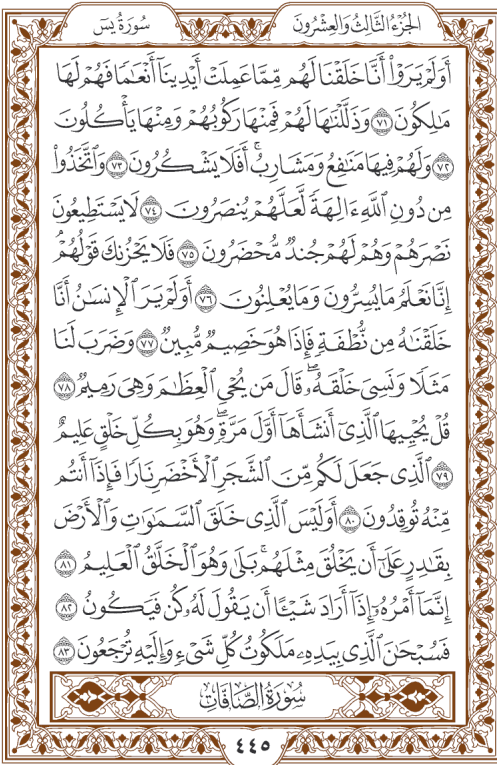 سُورَةُ يسٓ
الجُزْءُ الثَّالِثُ وَالعِشْرُونَ
أَوَلَمْ يَرَوْا۟ أَنَّا خَلَقْنَا لَهُم مِّمَّا عَمِلَتْ أَيْدِينَآ أَنْعَٰمًا فَهُمْ لَهَا
مَٰلِكُونَ ٧١ وَذَلَّلْنَٰهَا لَهُمْ فَمِنْهَا رَكُوبُهُمْ وَمِنْهَا يَأْكُلُونَ
٧٢ وَلَهُمْ فِيهَا مَنَٰفِعُ وَمَشَارِبُ ۚ أَفَلَا يَشْكُرُونَ ٧٣ وَٱتَّخَذُوا۟
مِن دُونِ ٱللَّهِ ءَالِهَةً لَّعَلَّهُمْ يُنصَرُونَ ٧٤ لَا يَسْتَطِيعُونَ
نَصْرَهُمْ وَهُمْ لَهُمْ جُندٌ مُّحْضَرُونَ ٧٥ فَلَا يَحْزُنكَ قَوْلُهُمْ ۘ
إِنَّا نَعْلَمُ مَا يُسِرُّونَ وَمَا يُعْلِنُونَ ٧٦ أَوَلَمْ يَرَ ٱلْإِنسَٰنُ أَنَّا
خَلَقْنَٰهُ مِن نُّطْفَةٍ فَإِذَا هُوَ خَصِيمٌ مُّبِينٌ ٧٧ وَضَرَبَ لَنَا
مَثَلًا وَنَسِىَ خَلْقَهُۥ ۖ قَالَ مَن يُحْىِ ٱلْعِظَٰمَ وَهِىَ رَمِيمٌ ٧٨
قُلْ يُحْيِيهَا ٱلَّذِىٓ أَنشَأَهَآ أَوَّلَ مَرَّةٍ ۖ وَهُوَ بِكُلِّ خَلْقٍ عَلِيمٌ
٧٩ ٱلَّذِى جَعَلَ لَكُم مِّنَ ٱلشَّجَرِ ٱلْأَخْضَرِ نَارًا فَإِذَآ أَنتُم
مِّنْهُ تُوقِدُونَ ٨٠ أَوَلَيْسَ ٱلَّذِى خَلَقَ ٱلسَّمَٰوَٰتِ وَٱلْأَرْضَ
بِقَٰدِرٍ عَلَىٰٓ أَن يَخْلُقَ مِثْلَهُم ۚ بَلَىٰ وَهُوَ ٱلْخَلَّٰقُ ٱلْعَلِيمُ ٨١
إِنَّمَآ أَمْرُهُۥٓ إِذَآ أَرَادَ شَيْـًٔا أَن يَقُولَ لَهُۥ كُن فَيَكُونُ ٨٢
فَسُبْحَٰنَ ٱلَّذِى بِيَدِهِۦ مَلَكُوتُ كُلِّ شَىْءٍ وَإِلَيْهِ تُرْجَعُونَ ٨٣
سُورَةُ الصَّافَّاتِ
٤٤٥